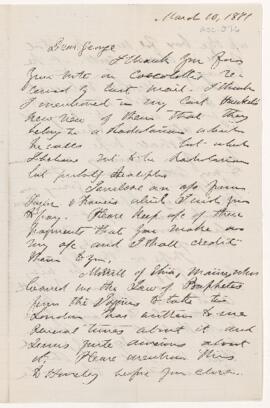 March 10, 1871
Dear George
I thank you for
your note on Coccoliths re-
ceived by last mail. I think
I mentioned in my last Haeckel's
new view of them that they
belong to a Radiolarian which
he calls but which
I believe not to be Radiolarian
but probably
I enclose an a/c from
Taylor & Francis which I wish you
to pay. Please keep a/c of these
payments that you make on
my a/c and I shall credit
them to you.
Morrill of this, Maine, when
loaned me the Law of Prophetes
from the to take to
London has written to me
several times about it and
seems quite anxious about
it. Please mention this
to before you close.